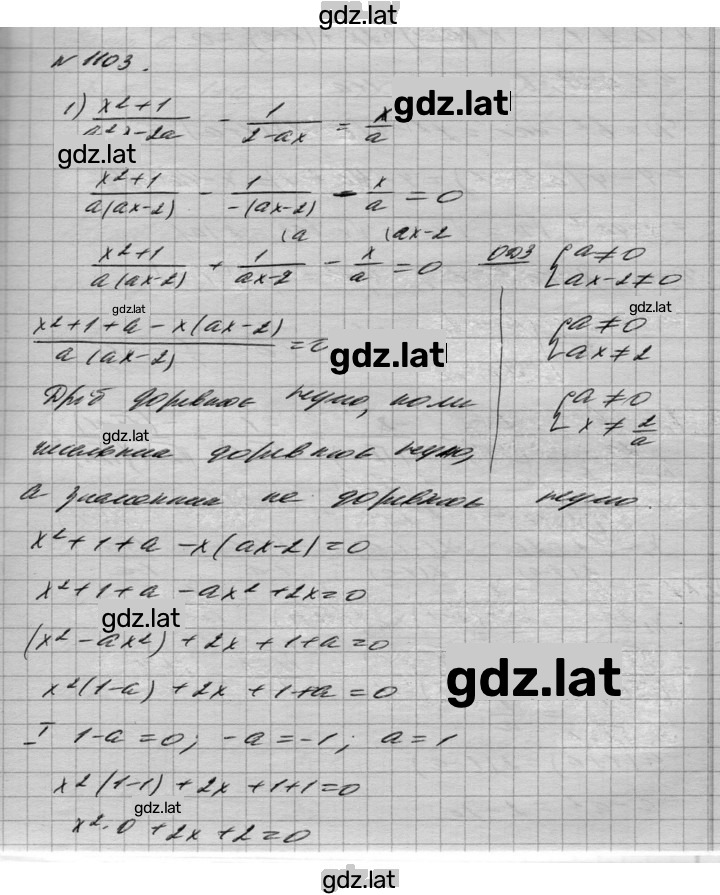 gdz.lat
N 1103.
1) (x²+1)/(a²x-2a) - 1/(2-ax) = x/a
gdz.lat
gdz.lat
(x²+1)/(a(ax-2)) - 1/(-(ax-2)) - x/a = 0
(a (ax-2
(x²+1)/(a(ax-2)) + 1/(ax-2) - x/a = 0 ОДЗ { a≠0
ax-2≠0
gdz.lat gdz.lat
(x²+1+a-x(ax-2))/(a(ax-2)) = { a≠0
ax≠2
gdz.lat
Дріб дорівнює нулю, коли { a≠0
x≠2/a
gdz.lat
чисельник дорівнює нулю,
а знаменник не дорівнює нулю.
x²+1+a-x(ax-2)=0
x²+1+a-ax²+2x=0
gdz.lat
(x²-ax²)+2x+1+a=0
gdz.lat
x²(1-a)+2x+1+a=0
I 1-a=0; -a=-1; a=1
x²(1-1)+2x+1+1=0
gdz.lat
x²·0+2x+2=0
gdz.lat